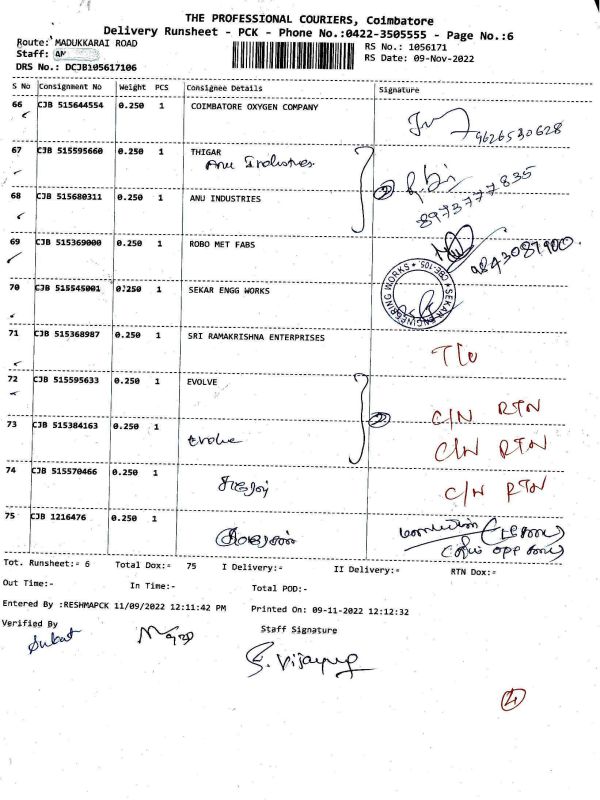 THE PROFESSIONAL COURIERS, Coimbatore
Delivery Runsheet - PCK - Phone No.:0422-3505555 - Page No.:6
Route: MADUKKARAI ROAD
RS No.: 1056171
Staff: AN
RS Date: 09-Nov-2022
DRS No.: DCJB105617106
S No Consignment No Weight PCS Consignee Details Signature
66 CJB 515644554 0.250 1 COIMBATORE OXYGEN COMPANY
9626530628
67 CJB 515595660 0.250 1 THIGAR
Anu Industries
2
68 CJB 515680311 0.250 1 ANU INDUSTRIES
8973777835
69 CJB 515369000 0.250 1 ROBO MET FABS
9843087900
70 CJB 515545001 0.250 1 SEKAR ENGG WORKS
SEKAR ENGINEERING WORKS * CBE-105 *
71 CJB 515368987 0.250 1 SRI RAMAKRISHNA ENTERPRISES
72 CJB 515595633 0.250 1 EVOLVE
2 C/N RTN
73 CJB 515384163 0.250 1
Evolve C/N RTN
74 CJB 515570466 0.250 1
C/N RTN
75 CJB 1216476 0.250 1
Tot. Runsheet:= 6 Total Dox:= 75 I Delivery:= II Delivery:= RTN Dox:=
Out Time:- In Time:- Total POD:-
Entered By :RESHMAPCK 11/09/2022 12:11:42 PM Printed On: 09-11-2022 12:12:32
Verified By Staff Signature
4